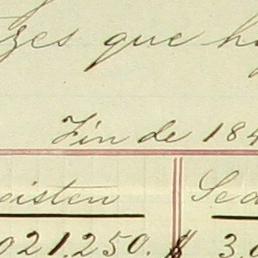 zes que ha
Fin de 184
eisten Sed
021.250. $ 3.0